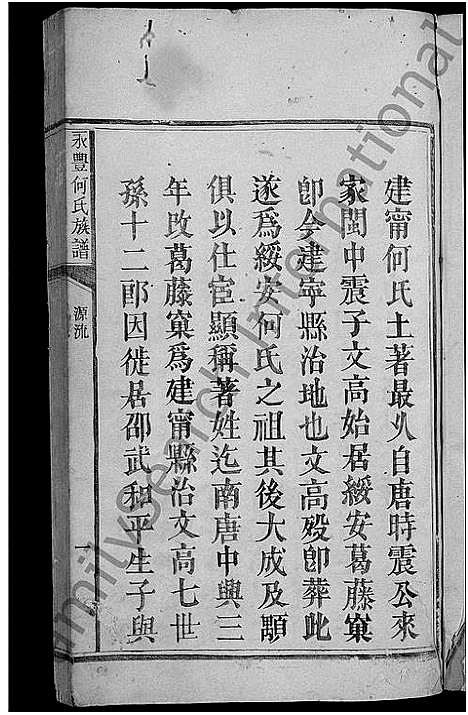 建甯何氏土著最久自唐時震公來
家閩中震子文高始居綏安葛藤窠
卽今建寧縣治地也文高殁卽葬此
遂爲綏安何氏之祖其後大成及顒
俱以仕宦顯稱著姓迄南唐中興三
年改葛藤窠爲建甯縣治文高七世
孫十二郎因徙居邵武和平生子與
永豐何氏族譜
源流
一
FamilySearch International